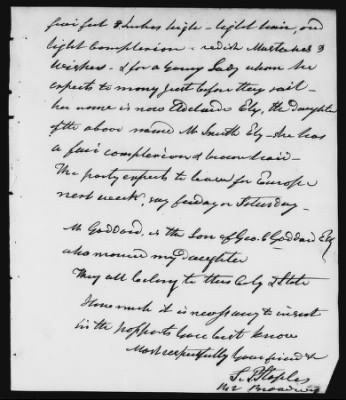 five feet 8 inches high - light hair, and
light Complexion - redish Mustaches &
Wiskers - & for a Young Lady whom he
expects to marry just before they sail -
her name is now Adelaide Ely, the daughter
of the above named Mr Smith Ely - She has
a fair complexion & brown hair -
The party expects to leave for Europe
next week, say friday or Saturday -
Mr Goddard, is the Son of Geo. C Goddard Esq
who married my daughter
They all belong to this City & State
How much it is necessary to insert
in the passports you best know
Most respectfully Your friend &
S. P. Staples
162 Broadway